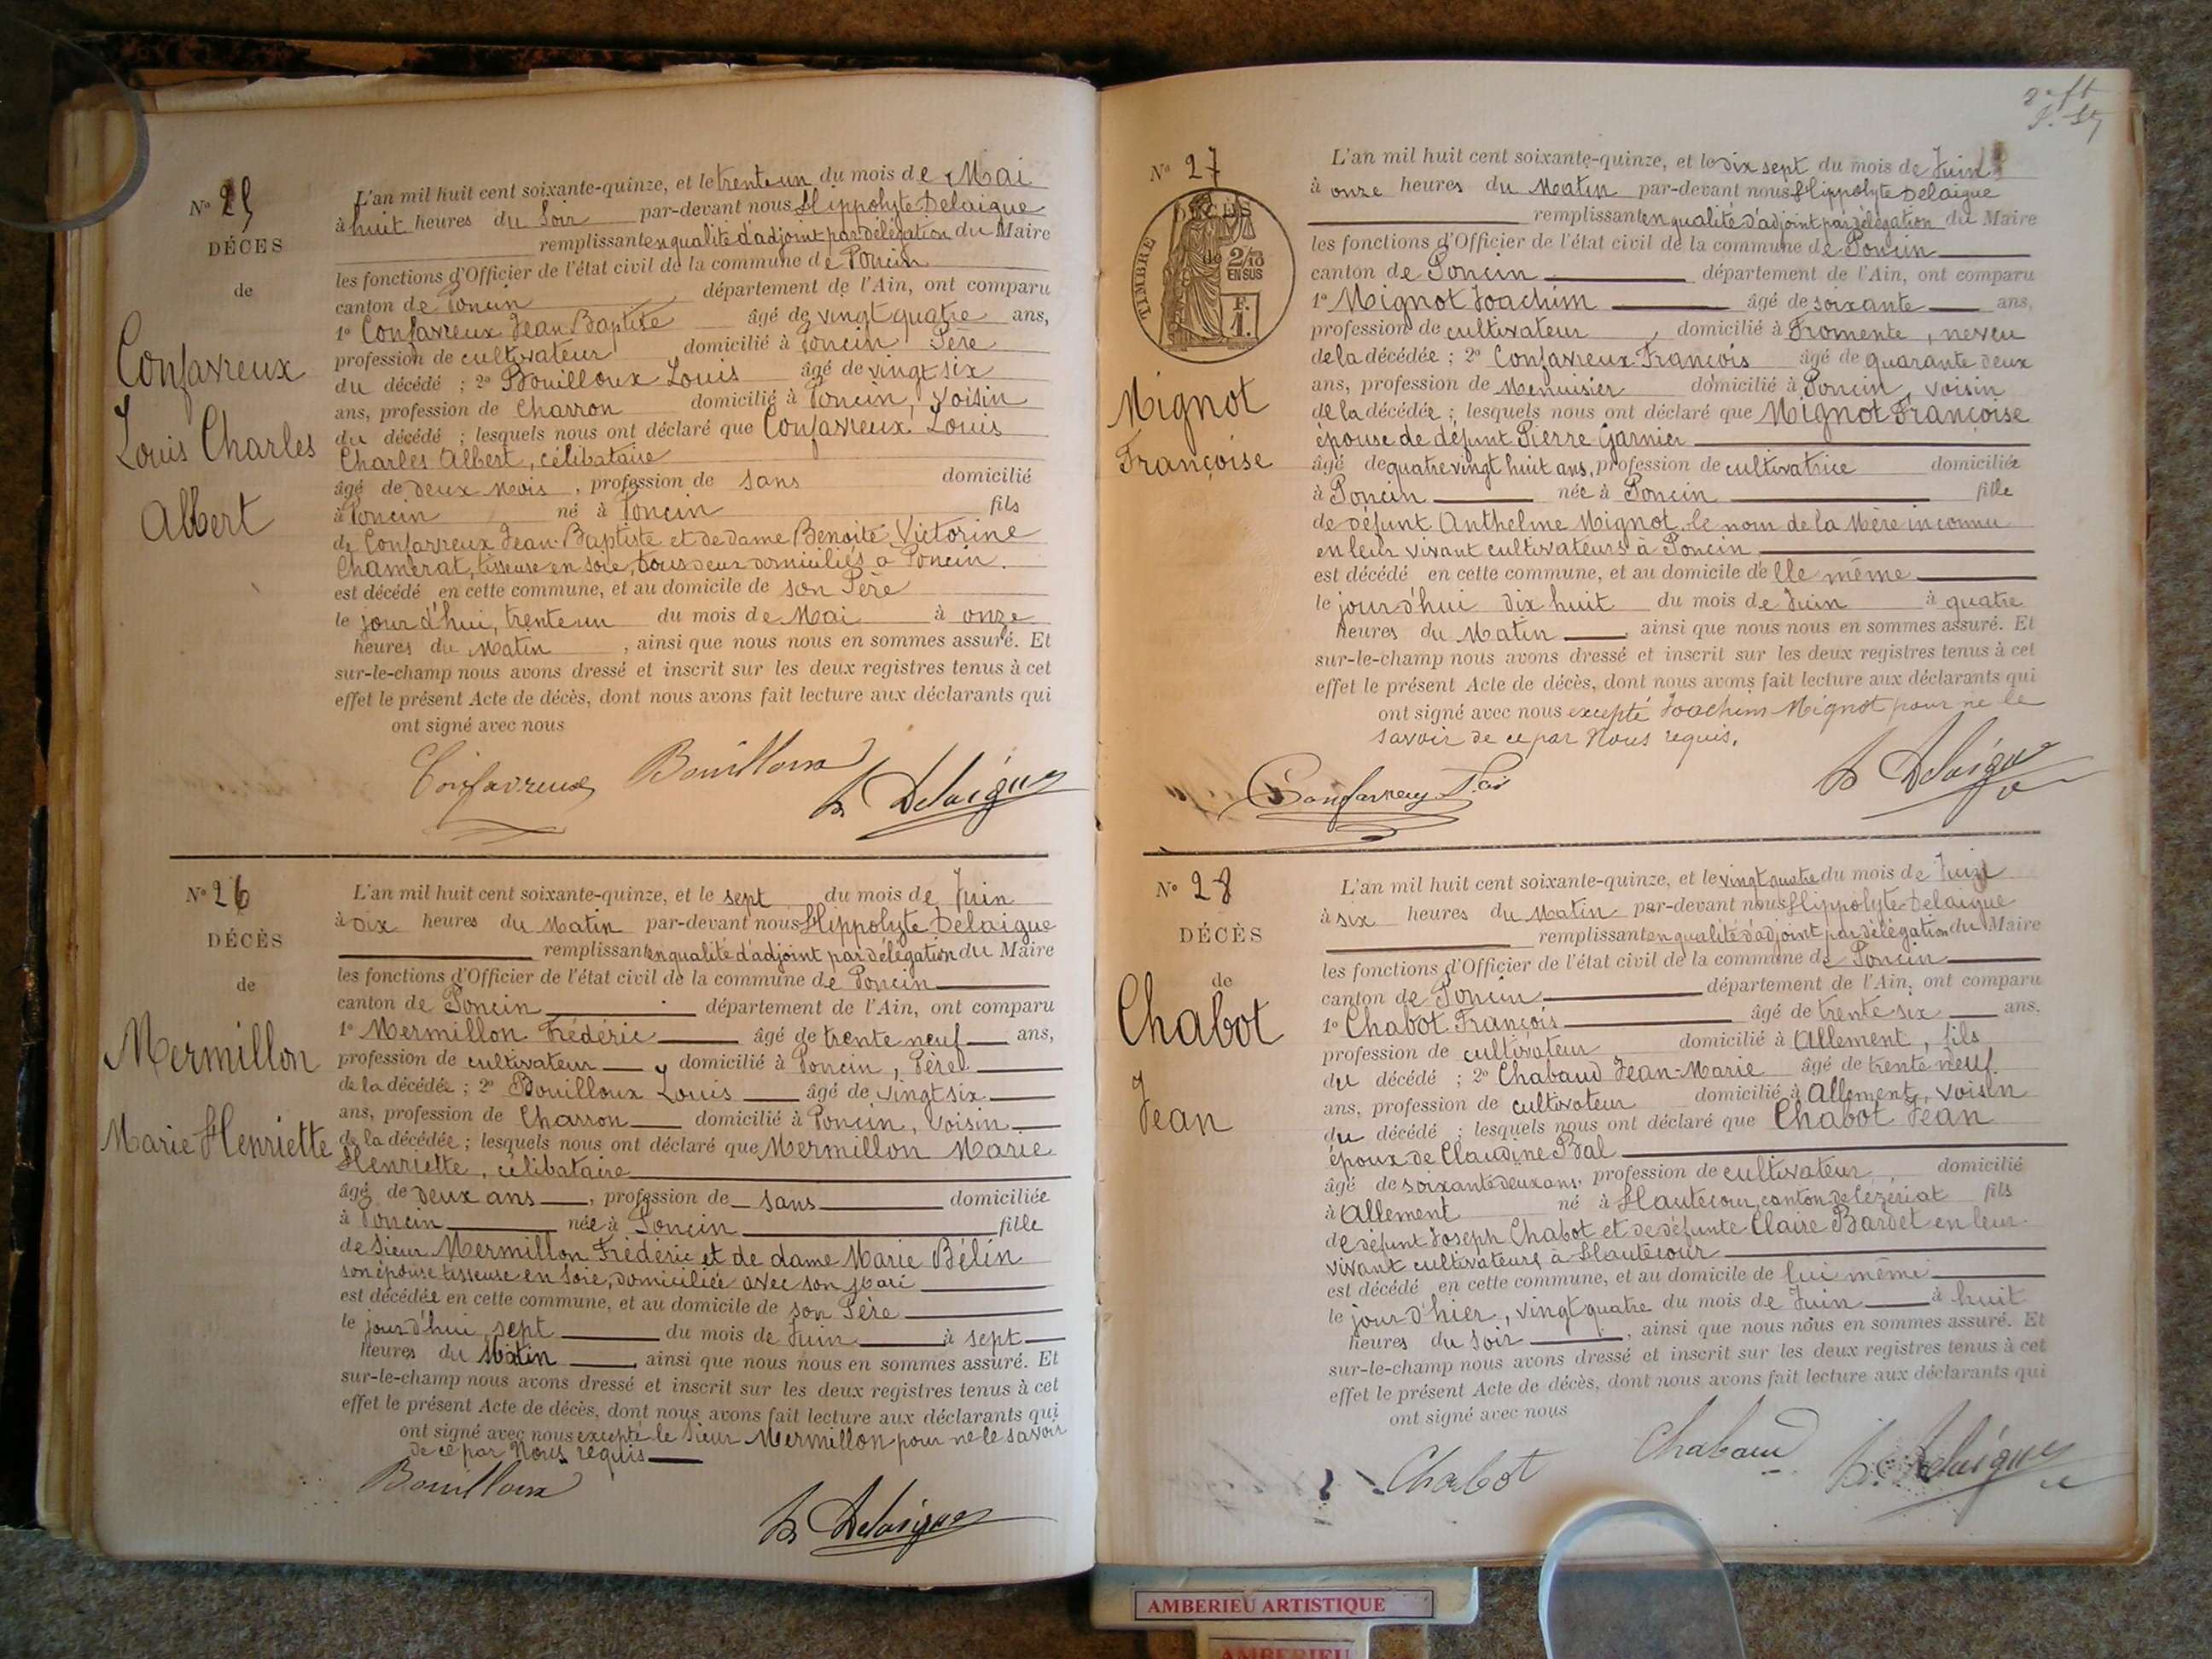 Nº 25
DÉCES
de
Confavreux
Louis Charles
Albert
L'an mil huit cent soixante-quinze, et le trente un du mois de Mai
à huit heures du Soir par-devant nous Hippolyte Delaigue
remplissant en qualité d'adjoint par délégation du Maire
les fonctions d'Officier de l'état civil de la commune de Poncin
canton de Poncin département de l'Ain, ont comparu
1º Confavreux Jean Baptiste âgé de vingt quatre ans,
profession de cultivateur domicilié à Poncin Père
du décédé ; 2º Bouilloux Louis âgé de vingt six
ans, profession de Charron domicilié à Poncin, Voisin
du décédé ; lesquels nous ont déclaré que Confavreux Louis
Charles Albert, célibataire
âgé de deux Mois, profession de sans domicilié
à Poncin né à Poncin fils
de Confavreux Jean-Baptiste et de dame Benoite Victorine
Chamerat, tisseuse en soie, tous deux domiciliés à Poncin.
est décédé en cette commune, et au domicile de son Père
le jour d'hui, trente un du mois de Mai à onze
heures du Matin, ainsi que nous nous en sommes assuré. Et
sur-le-champ nous avons dressé et inscrit sur les deux registres tenus à cet
effet le présent Acte de décès, dont nous avons fait lecture aux déclarants qui
ont signé avec nous
Confavreux Bouilloux
h Delaigue
Nº 26
DÉCÈS
de
Mermillon
Marie Henriette
L'an mil huit cent soixante-quinze, et le sept du mois de Juin
à dix heures du Matin par-devant nous Hippolyte Delaigue
remplissant en qualité d'adjoint par délégation du Maire
les fonctions d'Officier de l'état civil de la commune de Poncin
canton de Poncin département de l'Ain, ont comparu
1º Mermillon Frédéric âgé de trente neuf ans,
profession de cultivateur, domicilié à Poncin, Père
de la décédée ; 2º Bouilloux Louis âgé de vingt six
ans, profession de Charron domicilié à Poncin, Voisin
de la décédée ; lesquels nous ont déclaré que Mermillon Marie
Henriette, célibataire
âgé de deux ans, profession de sans domiciliée
à Poncin née à Poncin fille
de Sieur Mermillon Frédéric et de dame Marie Bélin
son épouse tisseuse en soie, domiciliée avec son Mari
est décédée en cette commune, et au domicile de son Père
le jour d'hui sept du mois de Juin à sept
heures du Matin, ainsi que nous nous en sommes assuré. Et
sur-le-champ nous avons dressé et inscrit sur les deux registres tenus à cet
effet le présent Acte de décès, dont nous avons fait lecture aux déclarants qui
ont signé avec nous excepté le Sieur Mermillon pour ne le savoir
de ce par Nous requis
Bouilloux
h Delaigue
Nº 27
DÉCÈS
de
TIMBRE
2/10
EN SUS
F.
1.
Mignot
Françoise
L'an mil huit cent soixante-quinze, et le dix sept du mois de Juin
à onze heures du Matin par-devant nous Hippolyte Delaigue
remplissant en qualité d'adjoint par délégation du Maire
les fonctions d'Officier de l'état civil de la commune de Poncin
canton de Poncin département de l'Ain, ont comparu
1º Mignot Joachim âgé de soixante ans,
profession de cultivateur, domicilié à Fromente, neveu
de la décédée ; 2º Confavreux François âgé de quarante deux
ans, profession de Menuisier domicilié à Poncin, voisin
de la décédée ; lesquels nous ont déclaré que Mignot Françoise
épouse de défunt Pierre Garnier
âgé de quatre vingt huit ans, profession de cultivatrice domiciliée
à Poncin née à Poncin fille
de défunt Anthelme Mignot, le nom de la Mère inconnu
en leur vivant cultivateurs à Poncin
est décédé en cette commune, et au domicile d'elle même
le jour d'hui dix huit du mois de Juin à quatre
heures du Matin, ainsi que nous nous en sommes assuré. Et
sur-le-champ nous avons dressé et inscrit sur les deux registres tenus à cet
effet le présent Acte de décès, dont nous avons fait lecture aux déclarants qui
ont signé avec nous excepté Joachim Mignot pour ne le
savoir de ce par Nous requis.
Confavreux f.ois h Delaigue
Nº 28
DÉCÈS
de
Chabot
Jean
L'an mil huit cent soixante-quinze, et le vingt quatre du mois de Juin
à six heures du Matin par-devant nous Hippolyte Delaigue
remplissant en qualité d'adjoint par délégation du Maire
les fonctions d'Officier de l'état civil de la commune de Poncin
canton de Poncin département de l'Ain, ont comparu
1º Chabot François âgé de trente six ans.
profession de cultivateur domicilié à Allement, fils
du décédé ; 2º Chabaud Jean-Marie âgé de trente neuf
ans, profession de cultivateur domicilié à Allement, voisin
du décédé ; lesquels nous ont déclaré que Chabot Jean
époux de Claudine Bal
âgé de soixante deux ans, profession de cultivateur, domicilié
à Allement né à Hautecour, canton de Cézériat fils
de défunt Joseph Chabot et de défunte Claire Bardet en leur
vivant cultivateurs à Hautecour
est décédé en cette commune, et au domicile de lui même
le jour d'hier, vingt quatre du mois de Juin à huit
heures du Soir, ainsi que nous nous en sommes assuré. Et
sur-le-champ nous avons dressé et inscrit sur les deux registres tenus à cet
effet le présent Acte de décès, dont nous avons fait lecture aux déclarants qui
ont signé avec nous
Chabot Chabaud h. Delaigue
AMBERIEU ARTISTIQUE
AMBERIEU